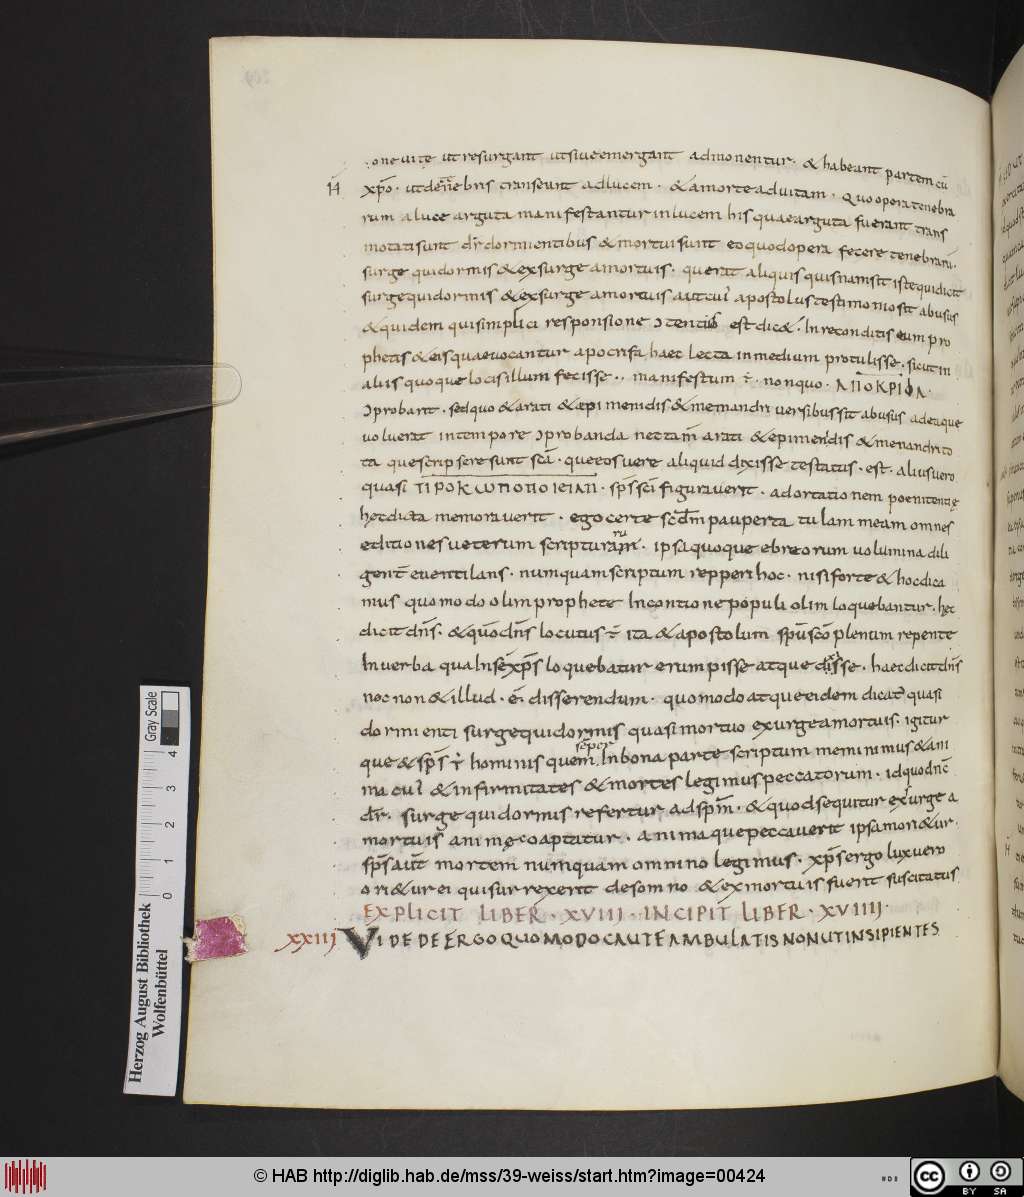 one uitę ut resurgant ut siue emergant admonentur · & habeant partem cū
xp̄o · ut de tenebris transeunt ad lucem · & a morte ad uitam · Quo opera tenebra
rum a luce arguta manifestantur in lucem his quae arguta fuerant trans
motati sunt dr̄ dormientibus & mortui sunt eo quod opera fecere tenebrarū ·
surge qui dormis & exsurge a mortuis · querat aliquis quisnam sit iste qui dicit
surge qui dormis & exsurge a mortuis aut cui' apostolus testimonio sit abusus
& quidem qui simplici responsione est dic& · In reconditis eum pro
phetis & eis quae uocantur apocrifa haec lecta in medium protulisse · sicut in
aliis quoque locis illum fecisse · manifestum ē · non quo · ΑΠΟΚΡΙΦΑ ·
ɔprobarit · sed quo & arati & epimenidis & menandri uersibus sit abusus ad ea que
uoluerat in tempore ɔprobanda nec tam̄ arati & epimenidis & menandri to
ta que scripsere sunt sc̄a · que eos uere aliquid dixisse testatus · est · alius uero
quasi ΠΡΟΚωΠΟΠΟΙΕΙΑΝ · sp̄s sc̄i figurauerit · ad ortationem poenitentię
hęc dicta memorauerit · ego certe scd̄m paupertatulam meam omnes
editiones ueterum scripturarum · ipsa quoque ebreorum uolumina dili
gent̄ euentilans · numquam scriptum repperi hoc · nisi forte & hoc dica
mus quomodo olim prophete In contione populi olim loquebantur · hęc
dicit dn̄s · & qūo dn̄s locutus ē ita & apostolum sp̄u sc̄o plenum repente
In uerba qua In se xp̄s loquebatur erumpisse atque dixisse · haec dicit dn̄s
noc non & illud · ē disserendum · quomodo atque eidem dicat̄ quasi
dormienti surge qui dormis quasi mortuo exurge a mortuis · igitur
que & sp̄s ē hominis quem semper In bona parte scriptum meminimus & ani
ma cui' & infirmitates & mortes legimus peccatorum · id quod nc̄
dr̄ · surge qui dormis refertur ad sp̄m · & quod sequitur exurge a
mortuis animę coaptatur · anima que peccauerit ipsa mori&ur ·
sp̄s aūt mortem numquam omnino legimus · xp̄s ergo lux uero
ori&ur ei qui surrexerit de somno & ex mortuis fuerit suscitatus
EXPLICIT LIBER · XVIII · INCIPIT LIBER · XVIIII ·
XXIII VIDEDE ERGO QUOMODO CAUTE AMBULATIS NON UT INSIPIENTES
Herzog August Bibliothek
Wolfenbüttel
0 1 2 3 4
Gray Scale
© HAB http://diglib.hab.de/mss/39-weiss/start.htm?image=00424
cc BY SA